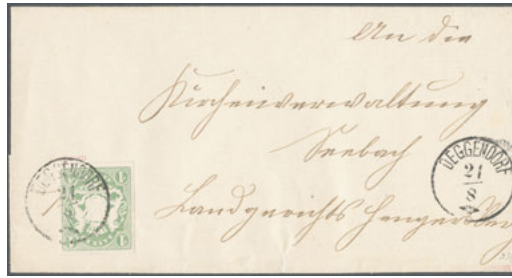 An die
Kirchenverwaltung
Seebach
Landgerichts Hengersberg
DEGGENDORF
21
8
DEGGENDORF
21
8
1
1